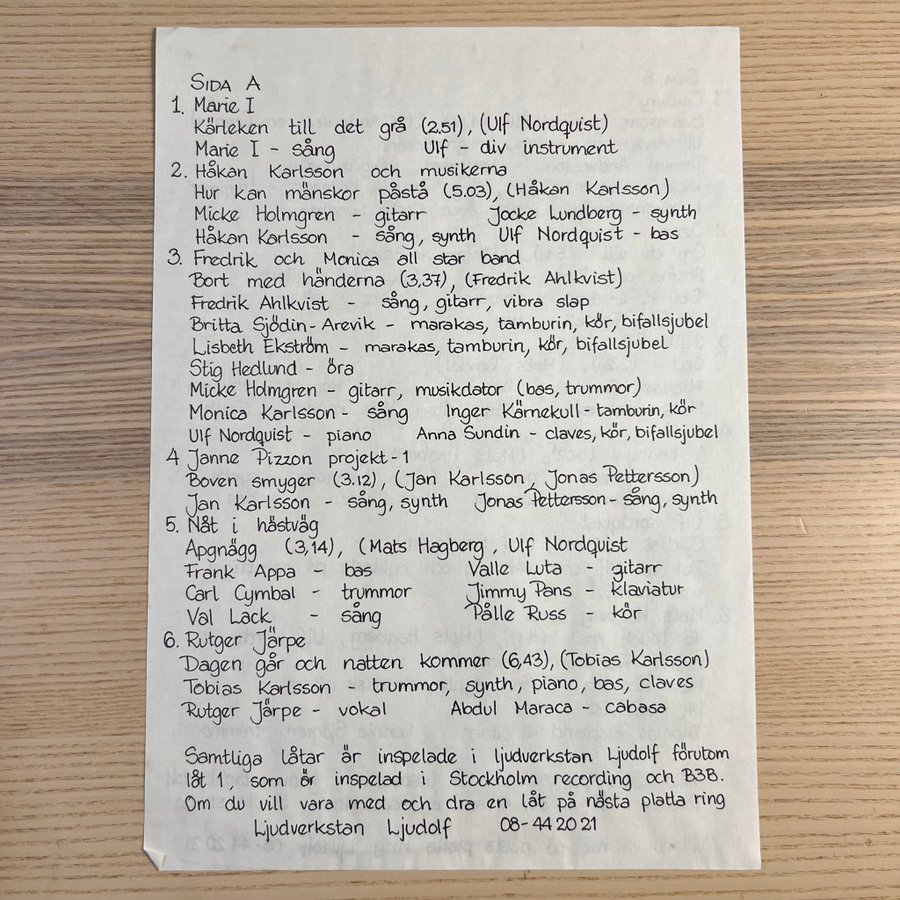 SIDA A
1. Marie I
Kärleken till det grå (2,51), (Ulf Nordquist)
Marie I - sång Ulf - div instrument
2. Håkan Karlsson och musikerna
Hur kan mänskor påstå (5.03), (Håkan Karlsson)
Micke Holmgren - gitarr Jocke Lundberg - synth
Håkan Karlsson - sång, synth Ulf Nordquist - bas
3. Fredrik och Monica all star band
Bort med händerna (3,37), (Fredrik Ahlkvist)
Fredrik Ahlkvist - sång, gitarr, vibra slap
Britta Sjödin-Arevik - marakas, tamburin, kör, bifallsjubel
Lisbeth Ekström - marakas, tamburin, kör, bifallsjubel
Stig Hedlund - öra
Micke Holmgren - gitarr, musikdator (bas, trummor)
Monica Karlsson - sång Inger Kärnekull - tamburin, kör
Ulf Nordquist - piano Anna Sundin - claves, kör, bifallsjubel
4 Janne Pizzon projekt-1
Boven smyger (3.12), (Jan Karlsson, Jonas Pettersson)
Jan Karlsson - sång, synth Jonas Pettersson - sång, synth
5. Nåt i hästväg
Apgnägg (3,14), (Mats Hagberg, Ulf Nordquist
Frank Appa - bas Valle Luta - gitarr
Carl Cymbal - trummor Jimmy Pans - klaviatur
Val Läck - sång Pålle Russ - kör
6. Rutger Järpe
Dagen går och natten kommer (6,43), (Tobias Karlsson)
Tobias Karlsson - trummor, synth, piano, bas, claves
Rutger Järpe - vokal Abdul Maraca - cabasa
Samtliga låtar är inspelade i ljudverkstan Ljudolf förutom
låt 1, som är inspelad i Stockholm recording och B3B.
Om du vill vara med och dra en låt på nästa platta ring
Ljudverkstan Ljudolf 08-44 20 21